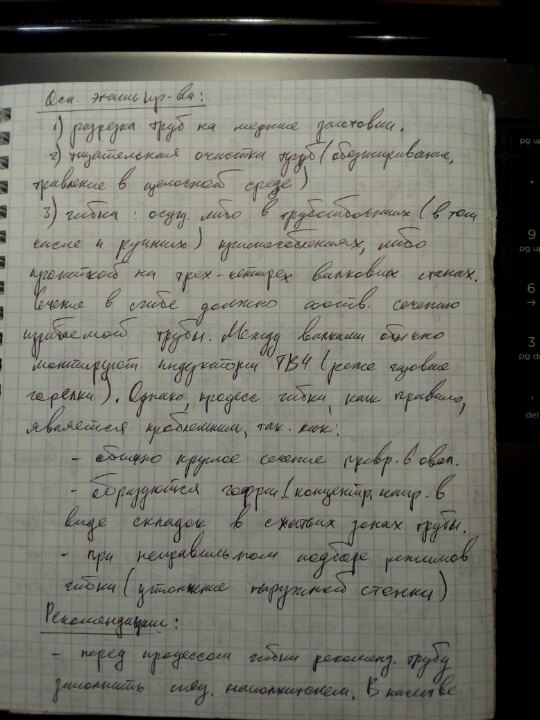 Осн. этапы пр-ва:
1) разрезка труб на мерные заготовки.
2) тщательная очистка труб (обезжиривание,
травление в щелочной среде)
3) гибка: осущ. либо в трубогибочных (в том
числе и ручных) приспособлениях, либо
прокаткой на трех-четырех валковых станах.
Сечение в сгибе должно соотв. сечению
изгибаемой трубы. Между валками обычно
монтируют индуктори ТВЧ (реже газовые
горелки). Однако, процесс гибки, как правило,
является проблемным, так. как:
- обычно круглое сечение превр. в овал.
- образуются гофры (концентр. напр. в
виде складок в сжатых зонах трубы.
- при неправильном подборе режимов
гибки (утонение наружной стенки)
Рекомендации:
- перед процессом гибки рекоменд. трубу
заполнить спец. наполнителем. В качестве
pg up
9
pg up
6
→
3
pg dn
del